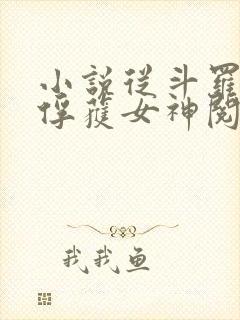 小説從斗羅
俘獲女神閱
我我鱼